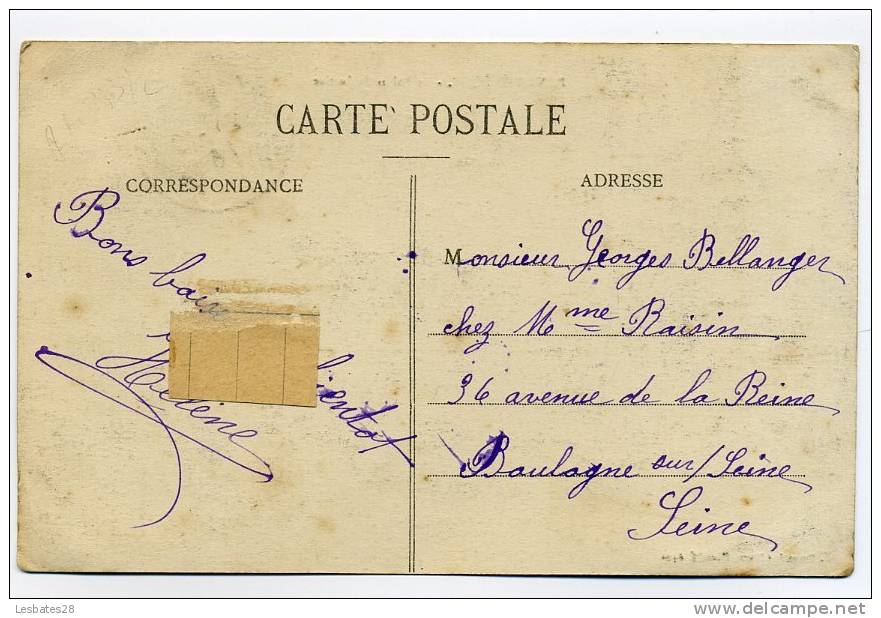 CARTE POSTALE
CORRESPONDANCE
ADRESSE
Bons bais
bientot
Helène
Monsieur Georges Bellanger
chez Mme Raisin
36 avenue de la Reine
Boulogne sur/Seine
Seine
Lesbates28
http://www.delcampe.net